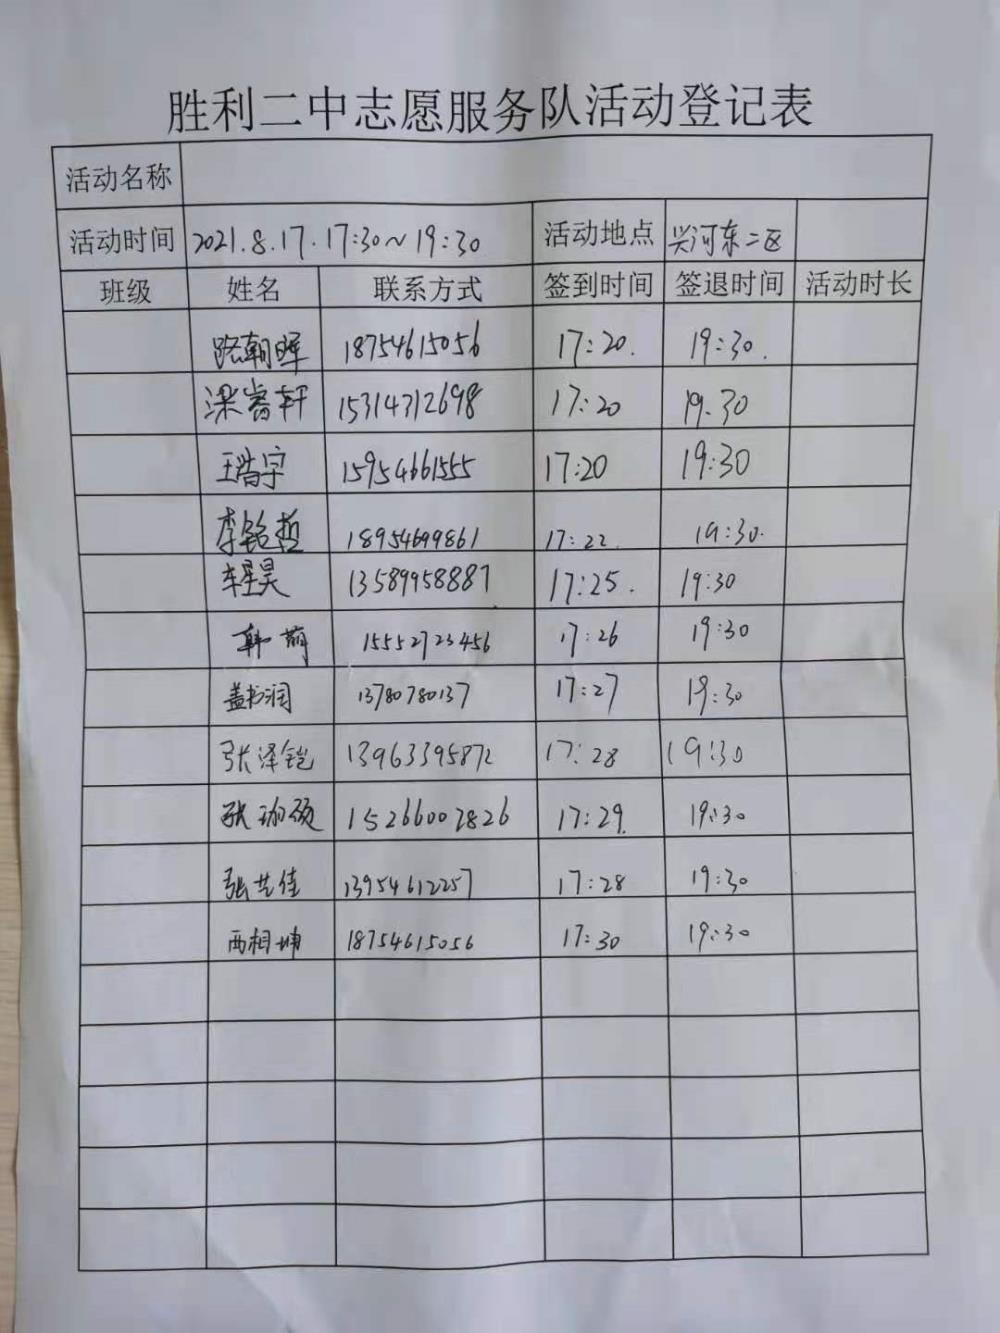 胜利二中志愿服务队活动登记表
活动名称
活动时间 2021.8.17.17:30~19:30 活动地点 兴河东二区
班级 姓名 联系方式 签到时间 签退时间 活动时长
路朝晖 18754615056 17:20. 19:30.
梁睿轩 15314312698 17:20 19.30
王浩宇 15954661555 17:20 19:30
李铭哲 18954699861 17:22. 19:30.
车星昊 13589958887 17:25. 19:30
韩萌 15552723456 17:26 19:30
盖书润 13780780137 17:27 19:30
张泽铠 13963395872 17:28 19:30
张 15266002826 17:29 19:30
张艺佳 13954612257 17:28 19:30
西相坤 18754615056 17:30 19:30